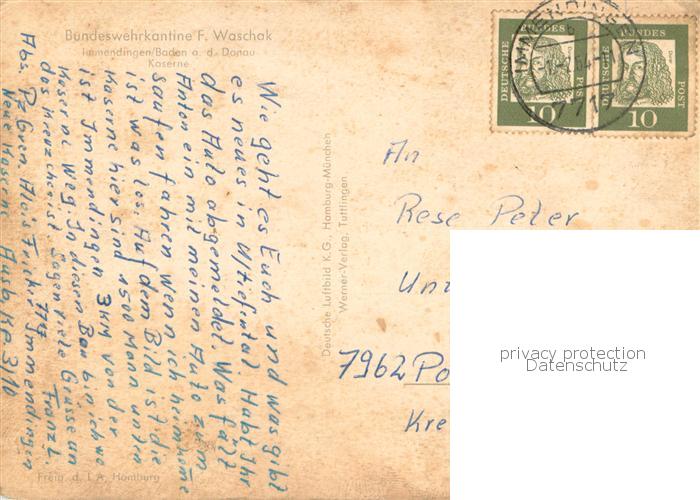 Bundeswehrkantine F. Waschak
Immendingen/Baden a. d. Donau
Kaserne
Wie geht es Euch und was gibt
es neues in Habt ihr
das Auto abgemeldet Was fällt
Anton ein mit meinen Auto zum
saufen fahren wenn ich heimkomme
ist was los. Auf dem Bild ist die
Kaserne hier sind 1500 Mann unten
ist Immendingen 3 km von der
Kaserne weg. In diesen Bau bin ich wo
das kreuzchen ist Grüsse an
Franzl.
Abs. Pz Gren. Alois Immendingen
Neue Kaserne Ausb. Kp 3/10
Freig. d. L A Hamburg
Deutsche Luftbild K.G., Hamburg-München
Werner-Verlag, Tuttlingen
IMMENDINGEN
771
DEUTSCHE BUNDESPOST
10
BUNDES
POST
10
An
Rese Peter
7962
Kre
privacy protection
Datenschutz